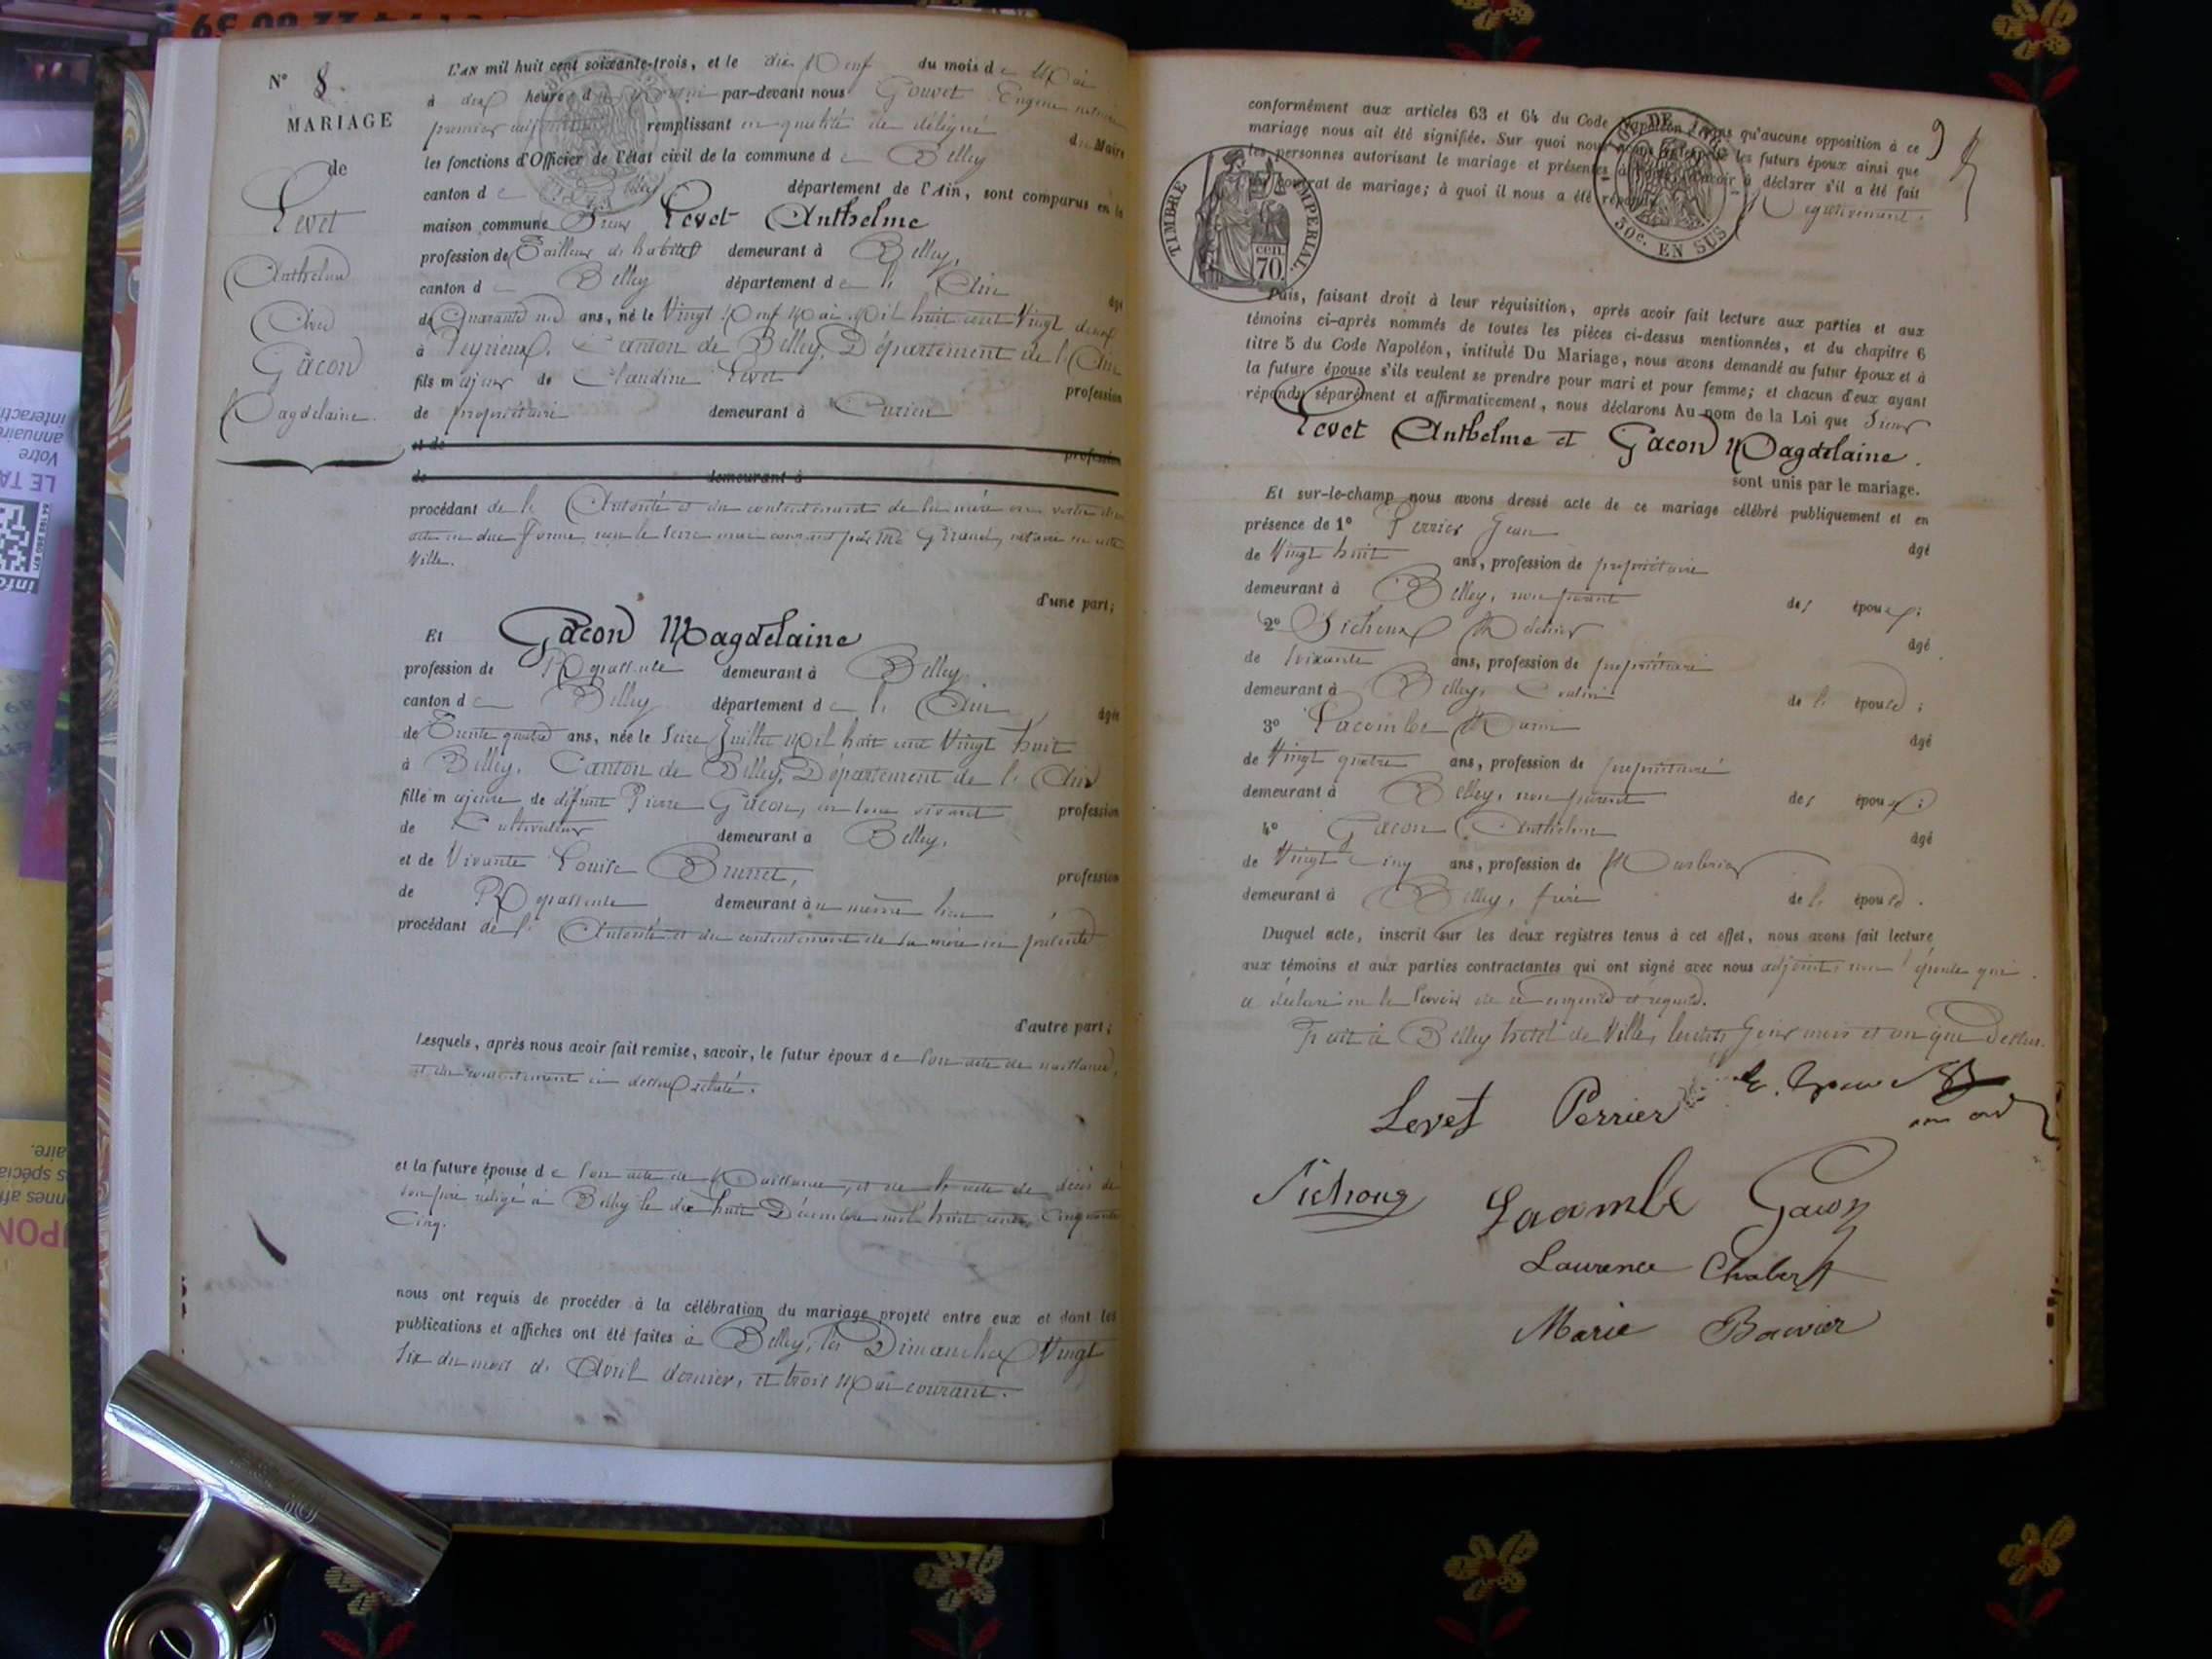 N° 8.
MARIAGE
de
Levet
Anthelme
Avec
Gacon
Magdelaine.
L'AN mil huit cent soixante-trois, et le dix Neuf du mois de Mai
à deux heures du par-devant nous Gouvet Eugène
premier adjoint remplissant en qualité de délégué du Maire
les fonctions d'Officier de l'état civil de la commune de Belley
canton de Belley département de l'Ain, sont comparus en la
maison commune Sieur Levet Anthelme
profession de Tailleur d'habits demeurant à Belley,
canton de Belley département de l'Ain âgé
de Quarante un ans, né le Vingt Neuf Mai Mil huit cent Vingt deux
à Peyrieux, Canton de Belley, Département de l'Ain
fils majeur de Claudine Levet profession
de propriétaire demeurant à Curieu
et de profession
de demeurant à
procédant de l'Autorité et du consentement de sa mère en vertu d'un
acte en due forme, reçu le seize mai courant par Me notaire en cette
Ville.
d'une part;
Et Gacon Magdelaine
profession de Repasseuse demeurant à Belley
canton de Belley département de l'Ain âgée
de Trente quatre ans, née le Seize Juillet Mil huit cent Vingt huit
à Belley, Canton de Belley, Département de l'Ain
fille majeure de défunt Pierre Gacon, en son vivant profession
de Cultivateur demeurant à Belley,
et de Vivante Louise Brunet, profession
de Repasseuse demeurant au même lieu
procédant de l'Autorité et du consentement de sa mère ici présente
d'autre part;
Lesquels, après nous avoir fait remise, savoir, le futur époux de son acte de naissance,
et du consentement ci dessus relaté.
et la future épouse de son acte de Naissance, et de l'acte de décès de
son père rédigé à Belley le dix huit Décembre mil huit cent cinquante
Cinq.
nous ont requis de procéder à la célébration du mariage projeté entre eux et dont les
publications et affiches ont été faites à Belley, les Dimanches Vingt
Six du mois d'Avril dernier, et trois Mai courant.
9
conformément aux articles 63 et 64 du Code Napoléon, sans qu'aucune opposition à ce
mariage nous ait été signifiée. Sur quoi nous avons interpellé les futurs époux ainsi que
les personnes autorisant le mariage et présentes à nous déclarer s'il a été fait
un contrat de mariage; à quoi il nous a été répondu Négativement.
TIMBRE IMPERIAL
cen
70
30c. EN SUS
Puis, faisant droit à leur réquisition, après avoir fait lecture aux parties et aux
témoins ci-après nommés de toutes les pièces ci-dessus mentionnées, et du chapitre 6
titre 5 du Code Napoléon, intitulé Du Mariage, nous avons demandé au futur époux et à
la future épouse s'ils veulent se prendre pour mari et pour femme; et chacun d'eux ayant
répondu séparément et affirmativement, nous déclarons Au nom de la Loi que Sieur
Levet Anthelme et Gacon Magdelaine.
sont unis par le mariage.
Et sur-le-champ nous avons dressé acte de ce mariage célébré publiquement et en
présence de 1° Perrier Jean âgé
de Vingt huit ans, profession de propriétaire
demeurant à Belley, non parent des époux;
2° Sichoux âgé
de Soixante ans, profession de propriétaire
demeurant à Belley, Cousin de l'épouse;
3° Lacombe Marin âgé
de Vingt quatre ans, profession de propriétaire
demeurant à Belley, non parent des époux;
4° Gacon Anthelme âgé
de Vingt Cinq ans, profession de Marbrier
demeurant à Belley, frère de l'épouse.
Duquel acte, inscrit sur les deux registres tenus à cet effet, nous avons fait lecture
aux témoins et aux parties contractantes qui ont signé avec nous adjoint, non l'épouse qui
a déclaré ne le savoir de ce enquise et requise.
Fait à Belley hotel de Ville, lesdits Jour mois et an que Dessus.
Levet Perrier
Sichoux Lacombe Gacon
Laurence Chabert
Marie Bouvier